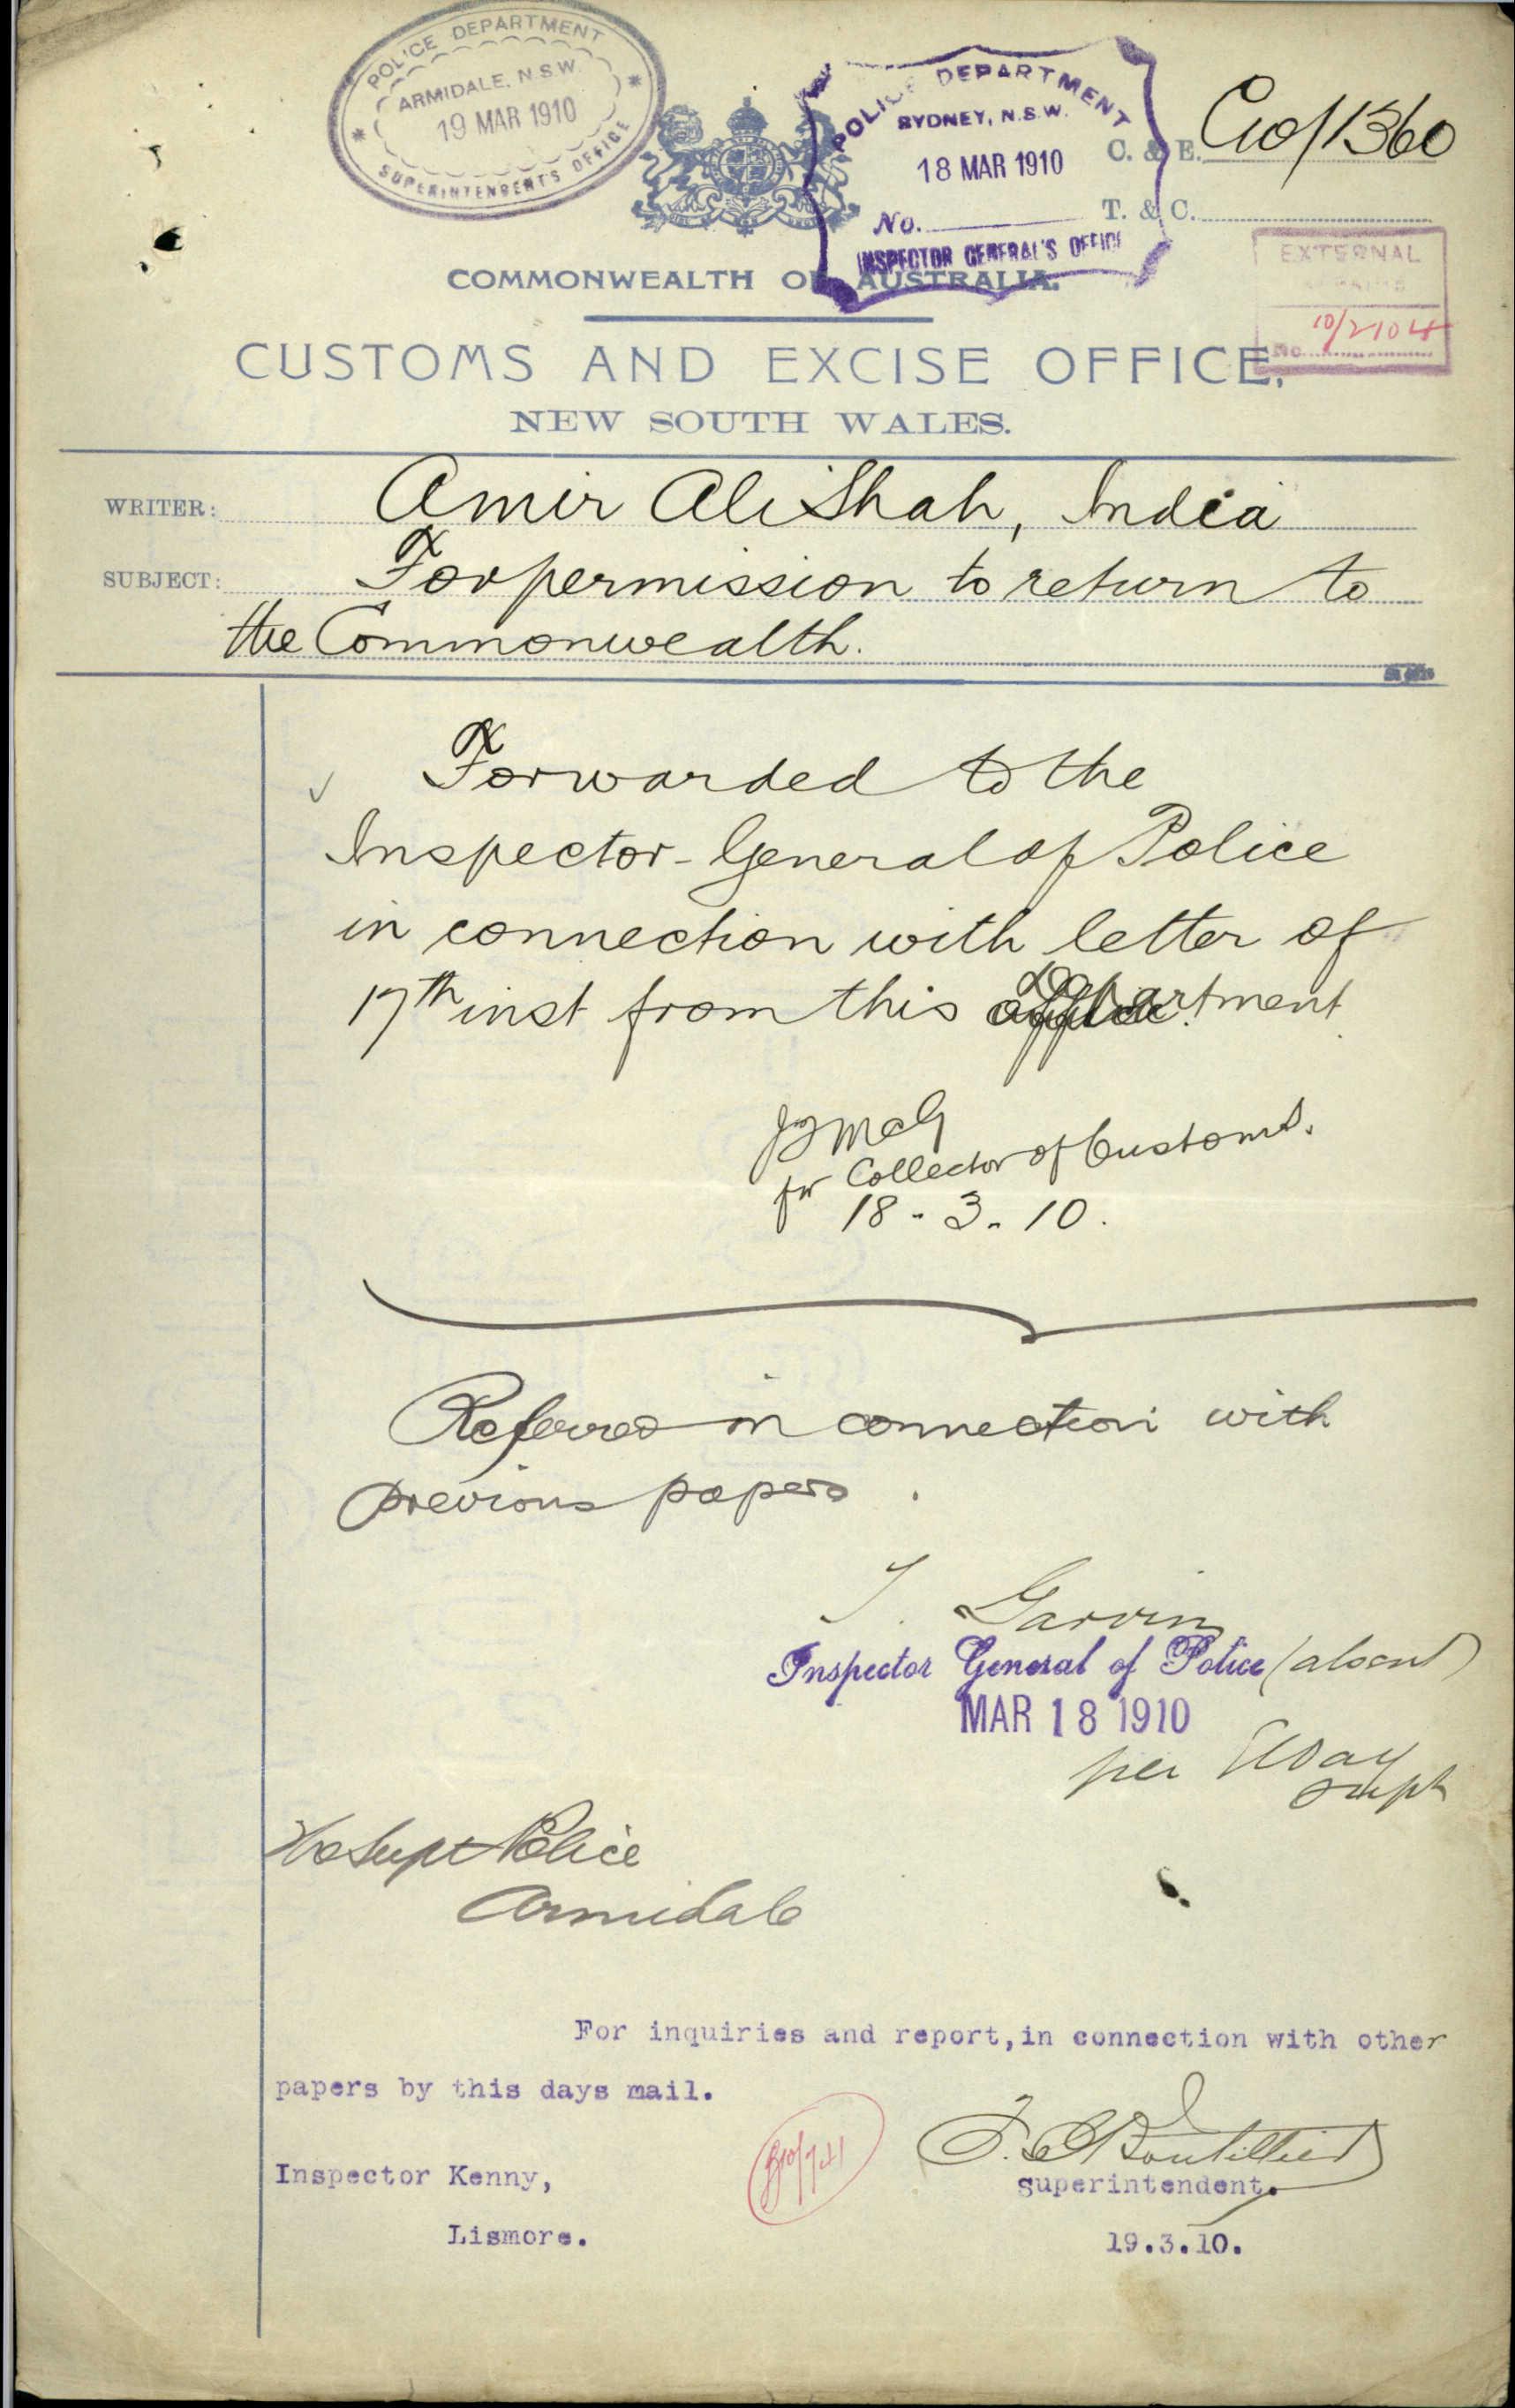 POLICE DEPARTMENT
ARMIDALE, N.S.W.
19 MAR 1910
SUPERINTENDENT'S OFFICE
POLICE DEPARTMENT
SYDNEY, N.S.W.
18 MAR 1910
No.
INSPECTOR GENERAL'S OFFICE
C. & E. C10/1360
T. & C.
EXTERNAL
No 10/2104
COMMONWEALTH OF AUSTRALIA.
CUSTOMS AND EXCISE OFFICE,
NEW SOUTH WALES.
WRITER: Amir Ali Shah, India
SUBJECT: For permission to return to
the Commonwealth.
Forwarded to the
Inspector-General of Police
in connection with letter of
17th inst from this Department
for Collector of Customs.
18-3-10.
Referred in connection with
previous papers.
T. Garvin
Inspector General of Police (absent)
MAR 18 1910
per Day
Supt
The Supt Police
Armidale
For inquiries and report,in connection with other
papers by this days mail.
Inspector Kenny,
Superintendent.
Lismore.
19.3.10.